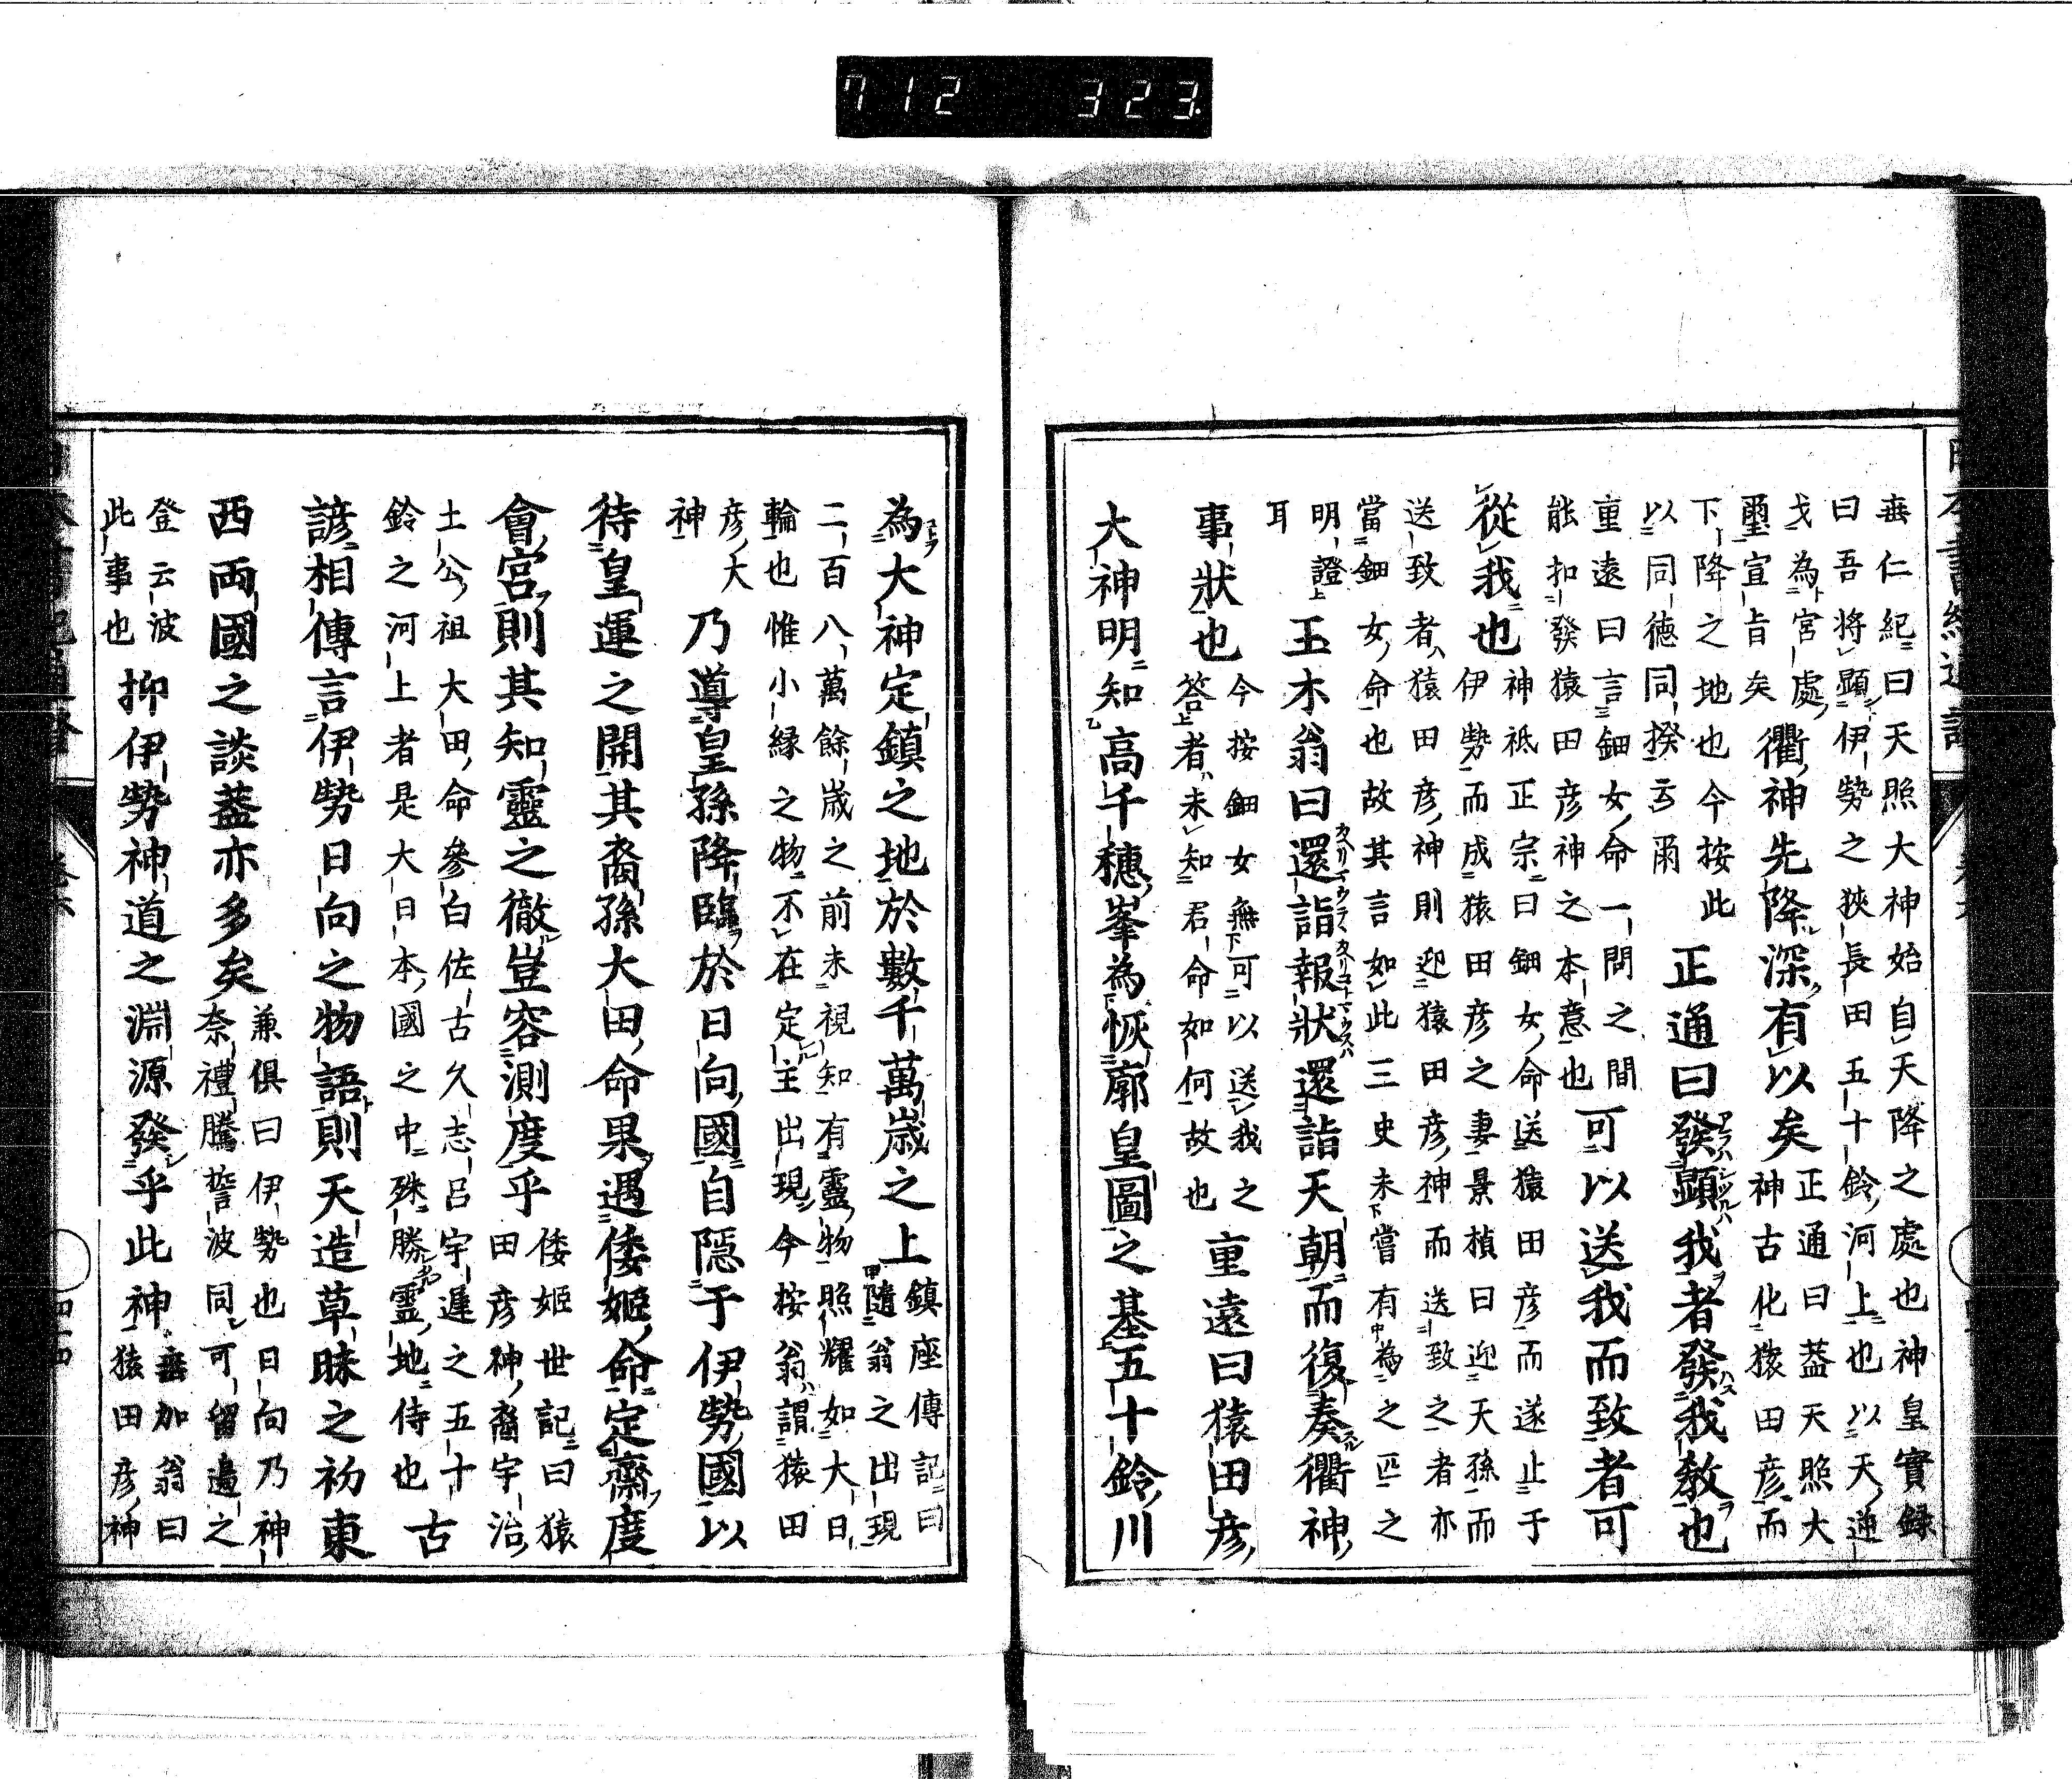 712 323
垂仁紀曰天照大神始自天降之處也神皇實録
曰吾將顯伊勢之狹長田五十鈴河上也以天逆
戈為宮處
璽宣㫖矣
衢神先降深有以矣
正通曰蓋天照大
神古化猿田彦而
下降之地也今按此
以同徳同揆云爾
正通曰發顯我者發我教也
重遠曰言鈿女命一問之間
能扣發猿田彦神之本意也
可以送我而致者可
從我也
神祇正宗曰鈿女命送猿田彦而遂止于
伊勢而成猿田彦之妻景楨曰迎天孫而
送致者猿田彦神則迎猿田彦神而送致之者亦
當鈿女命也故其言如此三史未嘗有為之匹之
明證
耳
玉木翁曰還詣報狀還詣天朝而復奏衢神
事狀也
今按鈿女無可以送我之
答者未知君命如何故也
重遠曰猿田彦
大神明知高千穗峯為恢廓皇圖之基五十鈴川
為大神定鎮之地於數千萬歳之上
鎮座傳記曰
隨翁之出現
二百八萬餘歳之前未視知有靈物照耀如大日
輪也惟小縁之物不在定主出現今按翁謂猿田
彦大
神
乃導皇孫降臨於日向國自隱于伊勢國以
待皇運之開其裔孫大田命果遇倭姫命定齋度
會宮則其知靈之徹豈容測度乎
倭姫世記曰猿
田彦神裔宇治
土公祖大田命參白佐古久志呂宇遲之五十
鈴之河上者是大日本國之中殊勝靈地侍也
古
諺相傳言伊勢日向之物語則天造草昧之初東
西両國之談蓋亦多矣
兼倶曰伊勢也日向乃神
奈禮騰誓波同可留邉之
登云波
此事也
抑伊勢神道之淵源發乎此神
垂加翁曰
猿田彦神